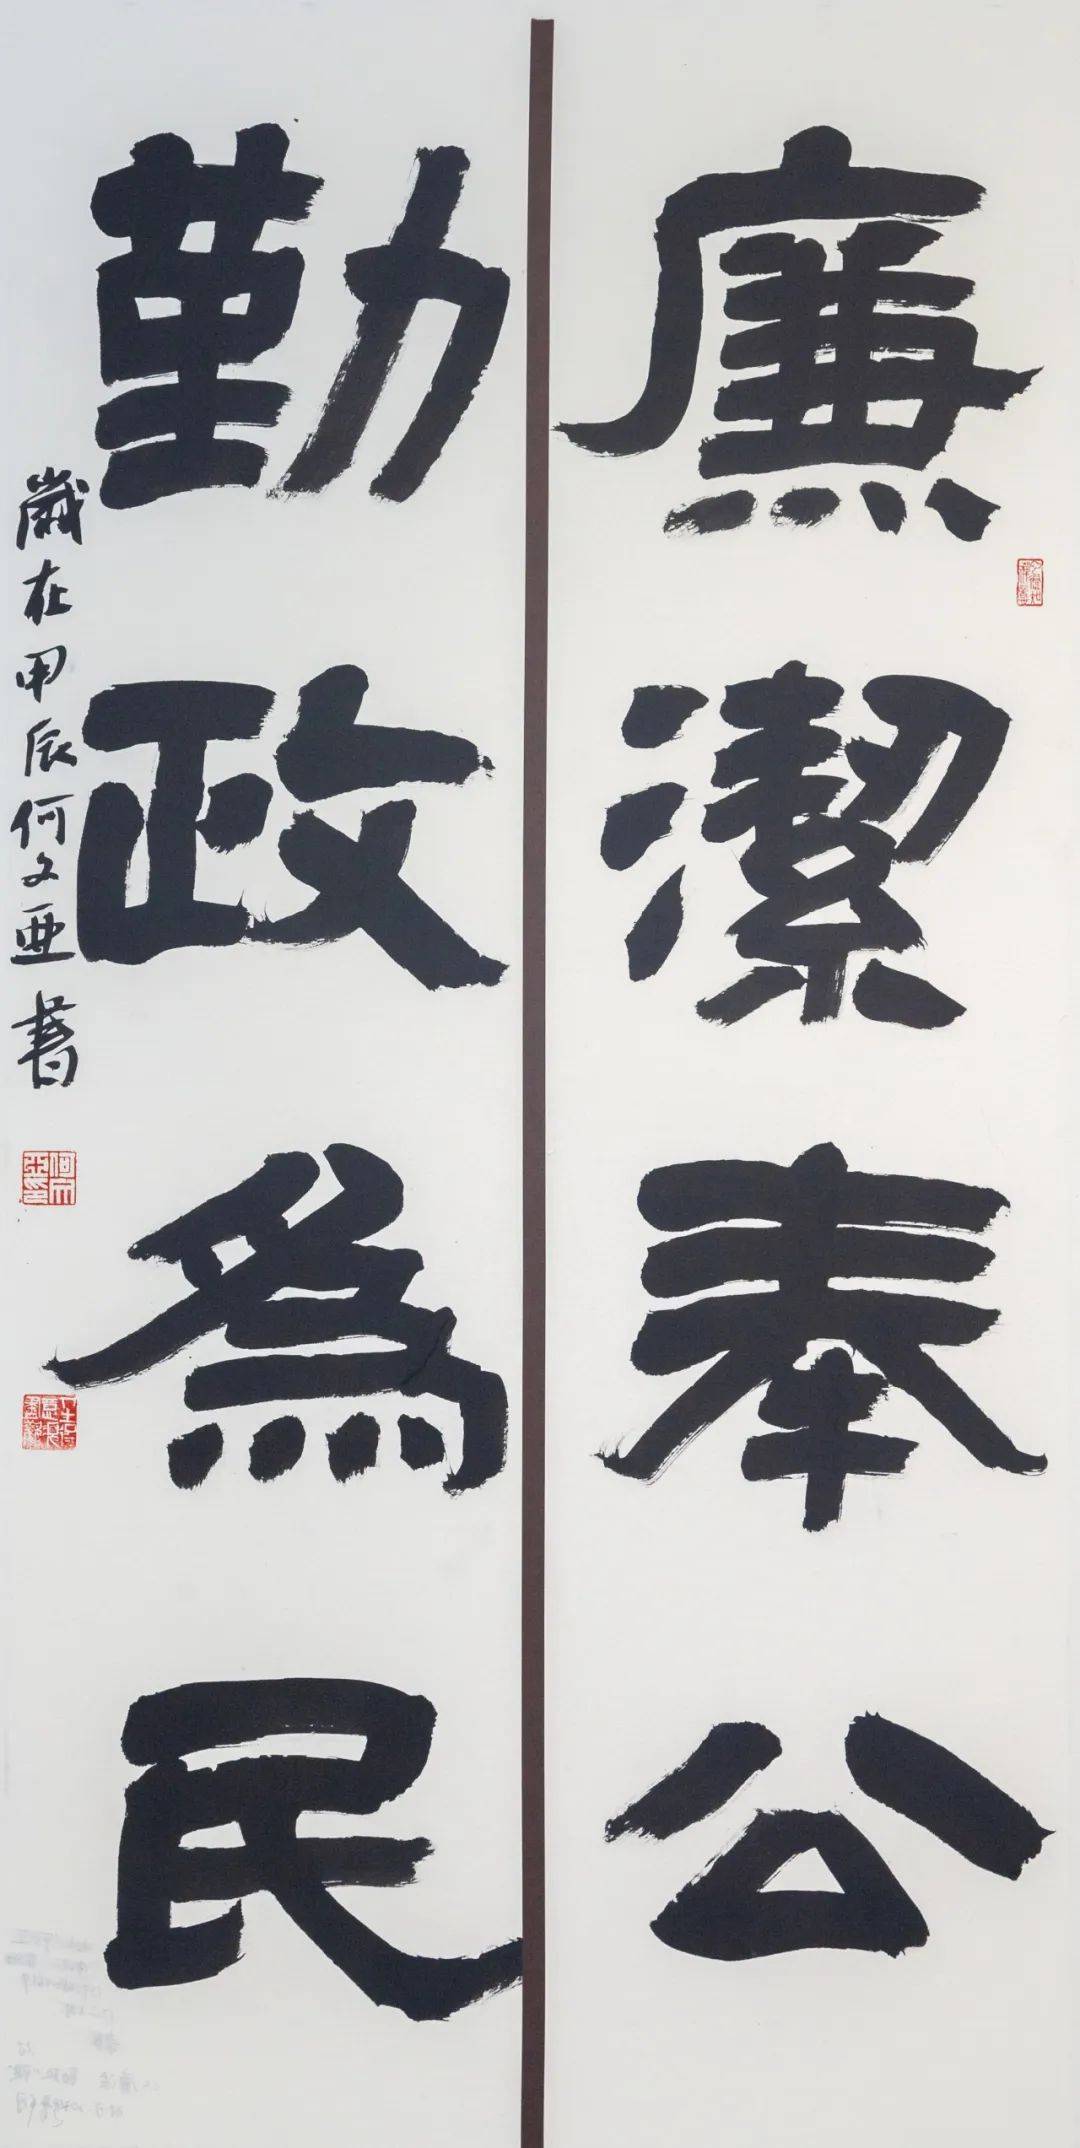 廉潔奉公
勤政為民
歲在甲辰何文亜書